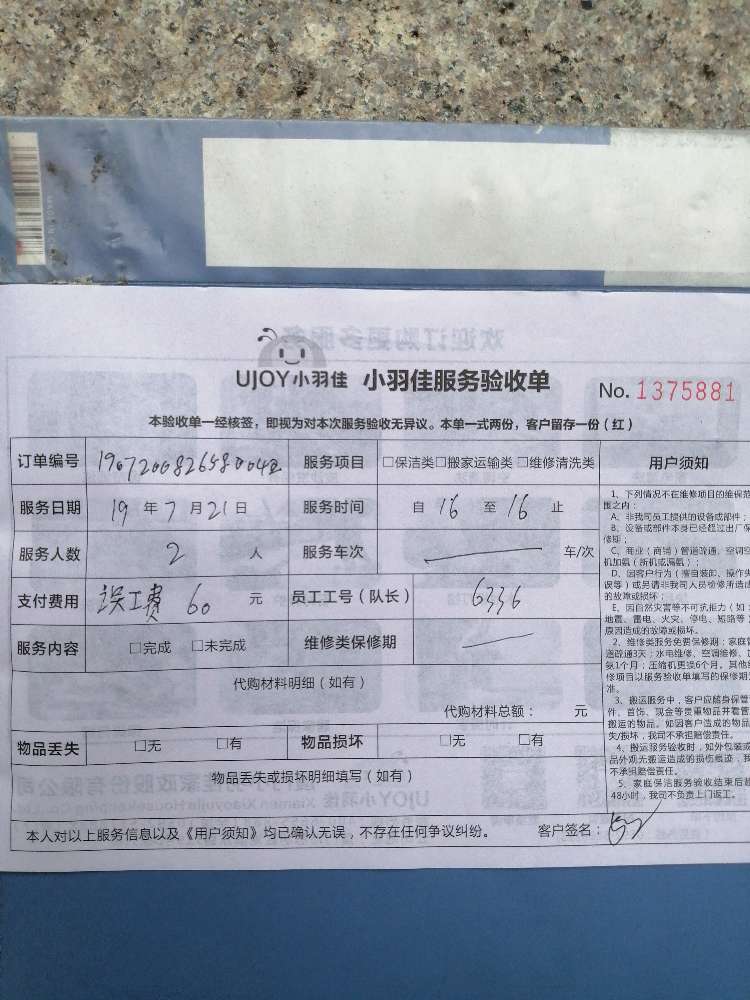 UJOY小羽佳 小羽佳服务验收单 No. 1375881
本验收单一经核签，即视为对本次服务验收无异议。本单一式两份，客户留存一份（红）
订单编号 服务项目 □保洁类□搬家运输类□维修清洗类
服务日期 19 年 7 月 21 日 服务时间 自 16 至 16 止
服务人数 2 人 服务车次 车/次
支付费用 误工费 60 元 员工工号（队长） 6336
服务内容 □完成 □未完成 维修类保修期
代购材料明细（如有）
代购材料总额： 元
物品丢失 □无 □有 物品损坏 □无 □有
物品丢失或损坏明细填写（如有）
本人对以上服务信息以及《用户须知》均已确认无误，不存在任何争议纠纷。 客户签名：
用户须知
1、下列情况不在维修项目的维保范
围之内：
A、非我司员工提供的设备或部件；
B、设备或部件本身已经超过出厂保
修期；
C、商业（商铺）管道疏通、空调空
机加氨（新机或漏氨）；
D、因客户行为（擅自装卸、操作失
误等）或另请非我司人员检修所造成
的故障或损坏；
E、因自然灾害等不可抗力（如：
地震、雷电、火灾、停电、短路等）
原因造成的故障或损坏。
2、维修类服务免费保修期：家庭管
道疏通3天；水电维修、空调维修、加
氨1个月；压缩机更换6个月。其他
修项目以服务验收单填写的保修期
准。
3、搬运服务中，客户应随身保管
件、首饰、现金等贵重物品并看管
搬运的物品。如因客户造成的物品
失/损坏，我司不承担赔偿责任。
4、搬运服务验收时，如外包装或
品外观无搬运造成的损伤痕迹，我
不承担赔偿责任。
5、家庭保洁服务验收结束后超
48小时，我司不负责上门返工。